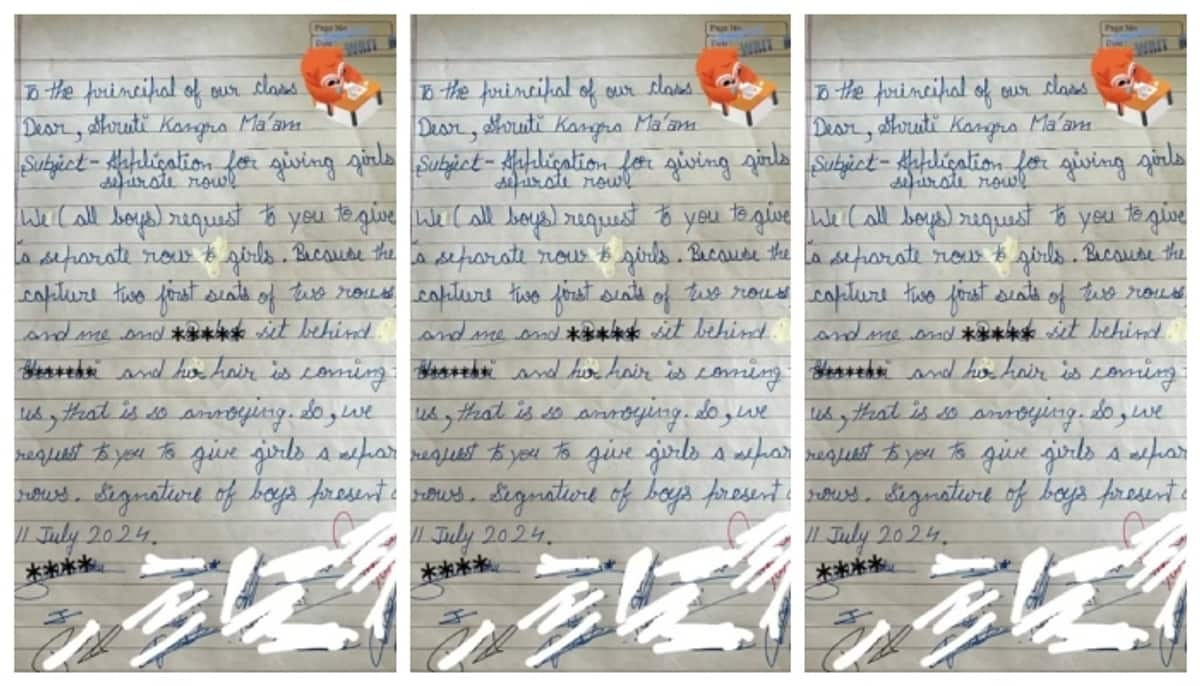 Page No
Date
WRIT
To the principal of our class
Dear, Shruti Kangra Ma'am
Subject - Application for giving girls
seperate row.
We (all boys) request to you to give
a separate row to girls. Because the
capture two first seats of two rows
and me and ***** sit behind
and her hair is coming
us, that is so annoying. So, we
request to you to give girls a separ
rows. Segnature of boys present
11 July 2024.
****
Page No
Date
WRIT
To the principal of our class
Dear, Shruti Kangra Ma'am
Subject - Application for giving girls
seperate row.
We (all boys) request to you to give
a separate row to girls. Because the
capture two first seats of two rows
and me and ***** sit behind
and her hair is coming
us, that is so annoying. So, we
request to you to give girls a separ
rows. Segnature of boys present
11 July 2024.
****
Page No
Date
WRIT
To the principal of our class
Dear, Shruti Kangra Ma'am
Subject - Application for giving girls
seperate row.
We (all boys) request to you to give
a separate row to girls. Because the
capture two first seats of two rows
and me and ***** sit behind
and her hair is coming
us, that is so annoying. So, we
request to you to give girls a separ
rows. Segnature of boys present
11 July 2024.
****